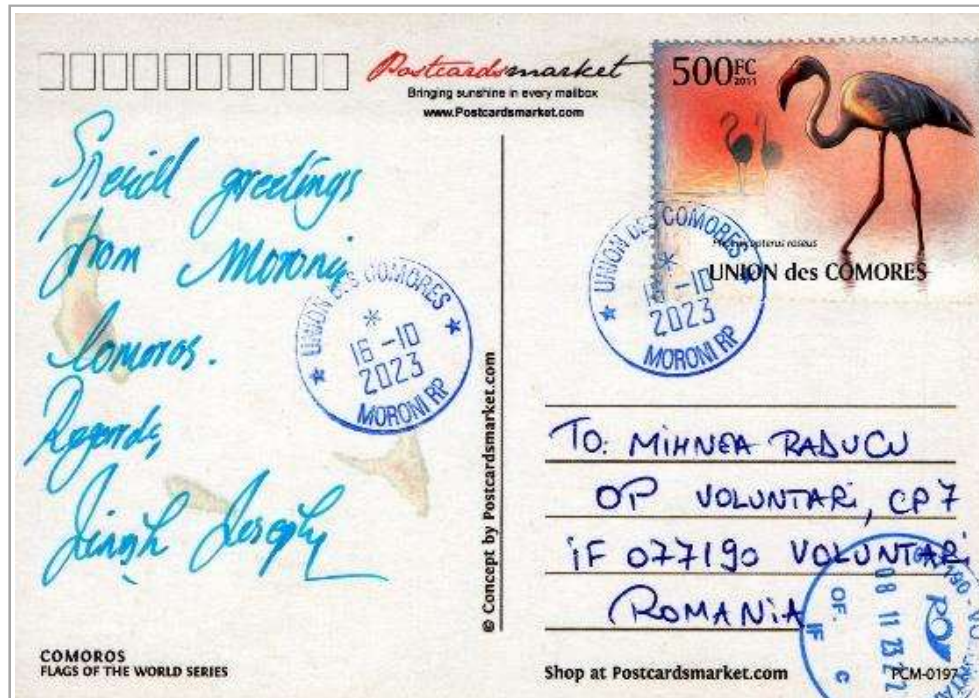 Postcardsmarket
Bringing sunshine in every mailbox
www.Postcardsmarket.com
500FC
2011
Phoenicopterus roseus
UNION des COMORES
greetings
from Moroni,
Comoros.
Regards,
Joseph
UNION DES COMORES
16-10
2023
MORONI RP
UNION DES COMORES
16-10
2023
MORONI RP
© Concept by Postcardsmarket.com
TO: MIHNEA RADUCU
OP VOLUNTARI, CP7
IF 077190 VOLUNTARI
ROMANIA
OF.
IF
08 11 23
COMOROS
FLAGS OF THE WORLD SERIES
Shop at Postcardsmarket.com
PCM-0197